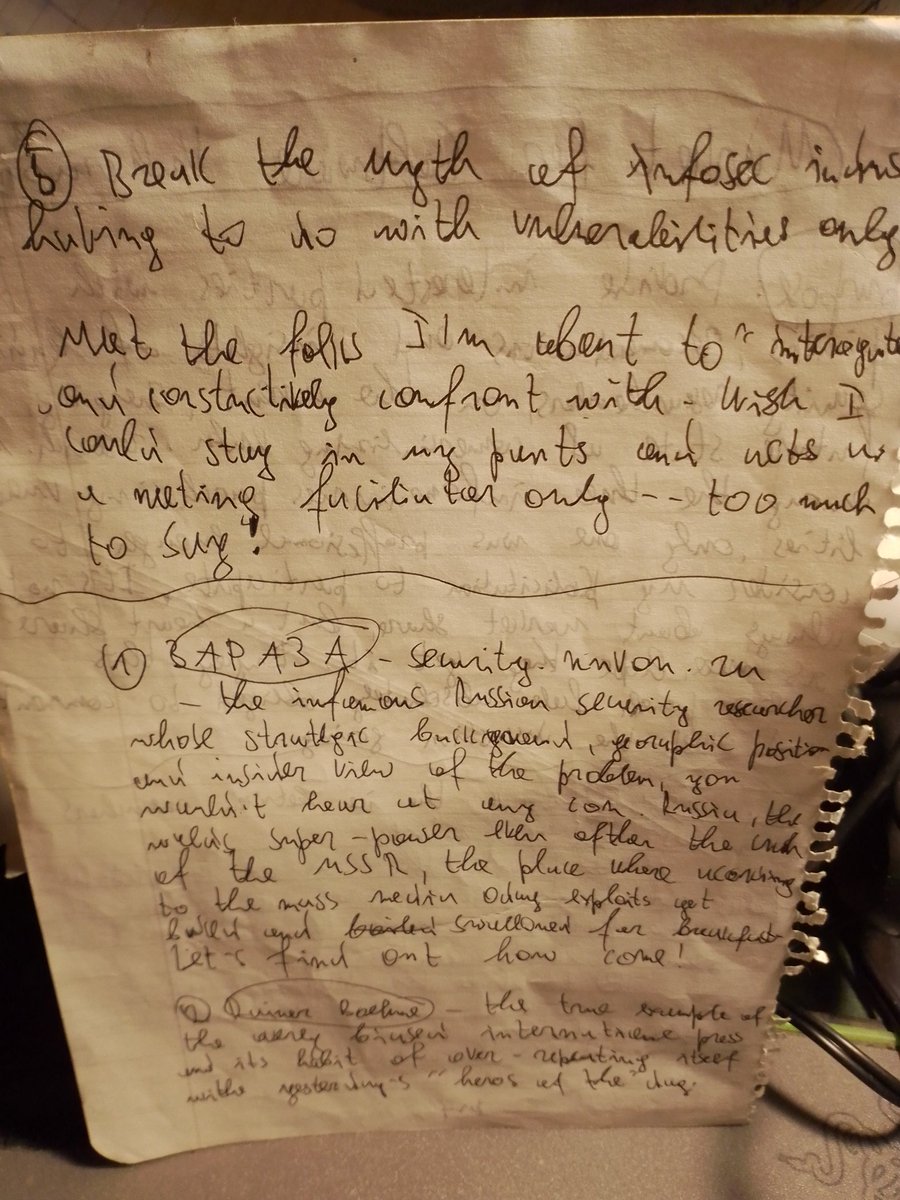 5 Break the myth of infosec indus
having to do with vulnerabilities only
Meet the folks I'm about to "interrogate
and constructively confront with - Wish I
could stay in my pants and acts as
a meeting facilitator only -- too much
to say"!
(1) ЗАРАЗА - security.nnov.ru
- the infamous Russian security researcher
whose strategic background, geographic position
and insider view of the problem, you
wouldn't hear at any con. Russia, the
super-power even after the end
of the USSR, the place where according
to the mass media 0day exploits get
boiled and swallowed for breakfast
Let's find out how come!
2) - the true example of
the biased international press
and its habit of over-repeating itself
with yesterday's "heros of the" day.